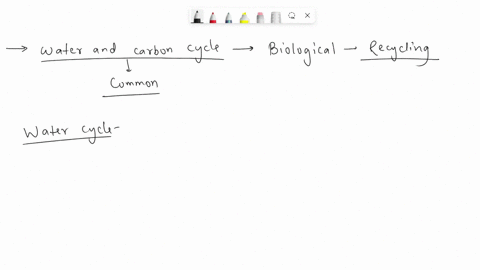 → Water and carbon cycle → Biological - Recycling
↓
Common
Water cycle-